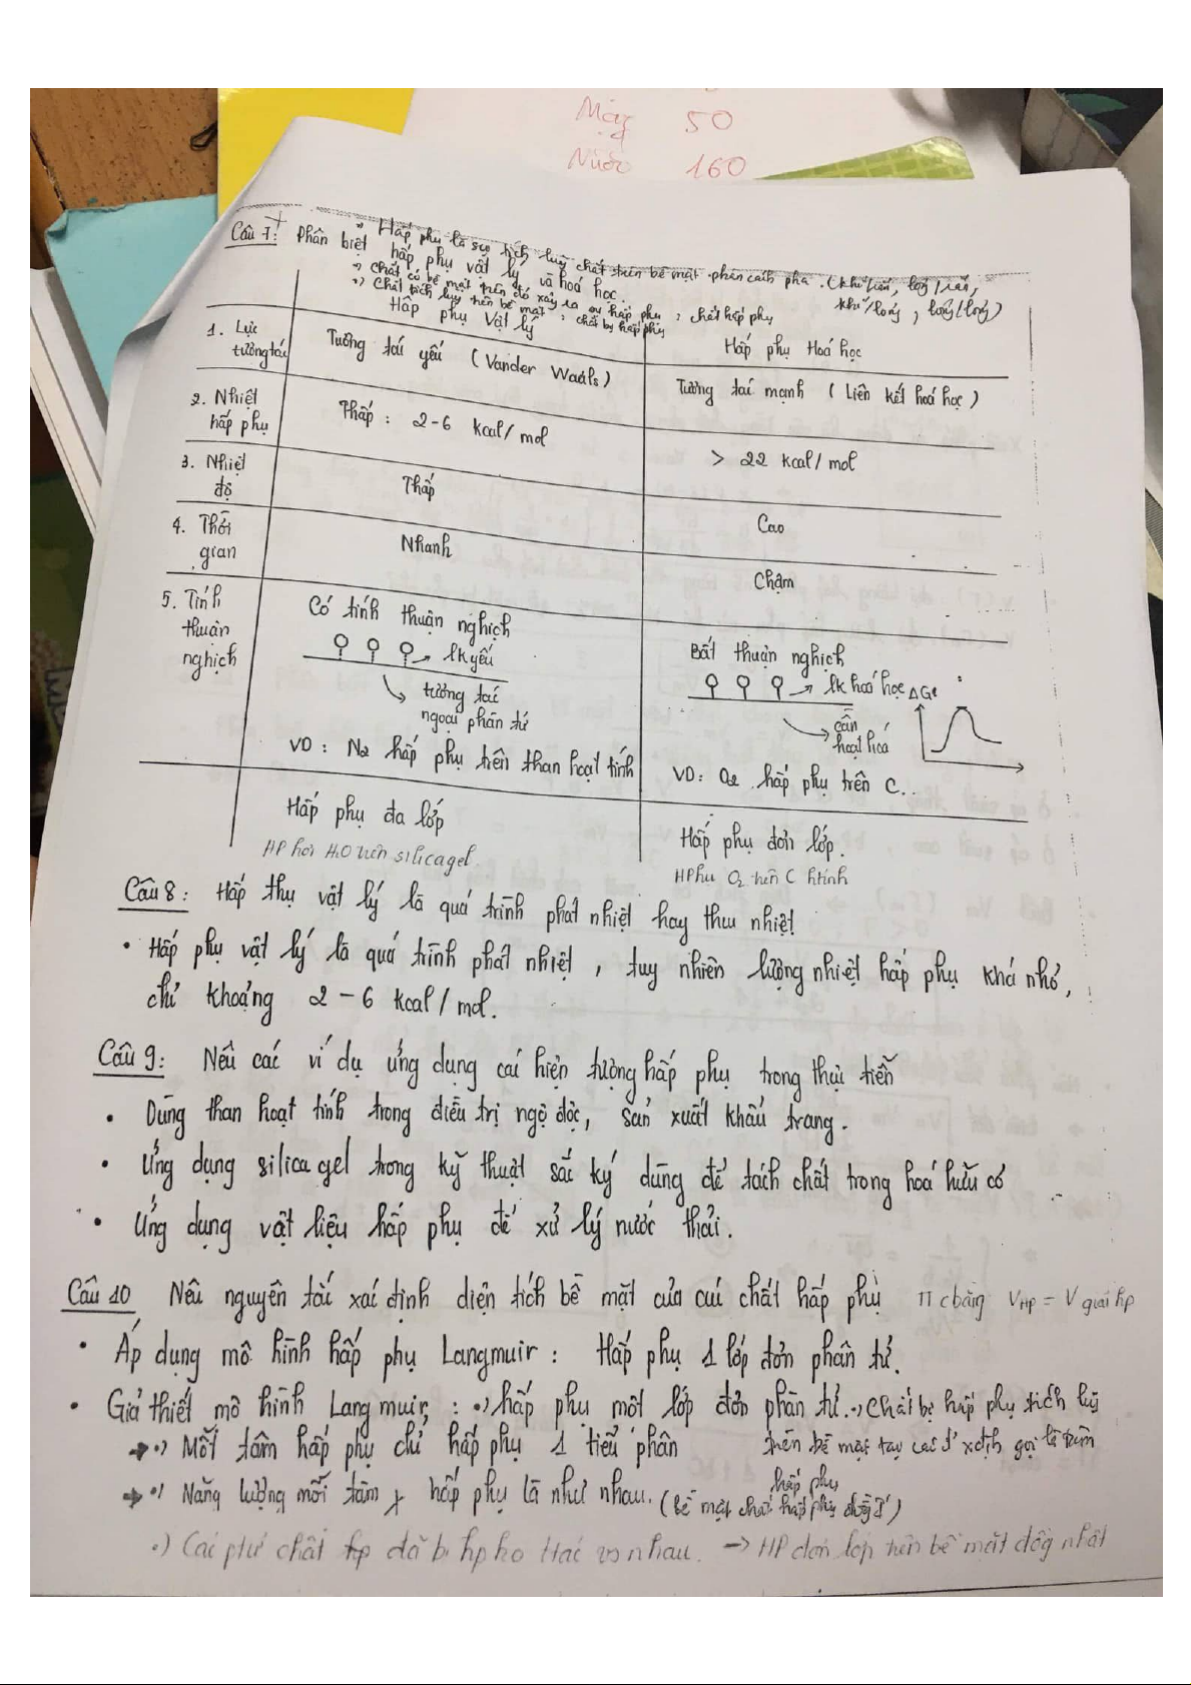 Máy 50
Nước 160
Câu 7: Phân biệt hấp phụ vật lý và hoá học.
Hấp phụ là sự tích luỹ chất trên bề mặt phân cách pha. (khí/rắn, lỏng/rắn, khí/lỏng, lỏng/lỏng)
→ Chất có bề mặt trên đó xảy ra sự hấp phụ: chất hấp phụ
•) Chất tích luỹ trên bề mặt: chất bị hấp phụ
Hấp phụ Vật lý
Hấp phụ Hoá học
1. Lực tương tác
Tương tác yếu (Vander Waals)
Tương tác mạnh (Liên kết hoá học)
2. Nhiệt hấp phụ
Thấp: 2-6 kcal/mol
> 22 kcal/mol
3. Nhiệt độ
Thấp
Cao
4. Thời gian
Nhanh
Chậm
5. Tính thuận nghịch
Có tính thuận nghịch
→ lk yếu
tương tác
ngoại phân tử
VD: N2 hấp phụ trên than hoạt tính
Bất thuận nghịch
→ lk hoá học
cần
hoạt hoá
ΔG
VD: O2 hấp phụ trên C..
Hấp phụ đa lớp
HP hơi H2O trên silicagel
Hấp phụ đơn lớp.
HPhụ O2 trên C htính
Câu 8: Hấp thụ vật lý là quá trình phát nhiệt hay thu nhiệt
• Hấp phụ vật lý là quá trình phát nhiệt, tuy nhiên lượng nhiệt hấp phụ khá nhỏ,
chỉ khoảng 2-6 kcal/mol.
Câu 9: Nêu các ví dụ ứng dụng các hiện tượng hấp phụ trong thực tiễn
• Dùng than hoạt tính trong điều trị ngộ độc, sản xuất khẩu trang.
• Ứng dụng silicagel trong kỹ thuật sắc ký dùng để tách chất trong hoá hữu cơ
• Ứng dụng vật liệu hấp phụ để xử lý nước thải.
Câu 10 Nêu nguyên tắc xác định diện tích bề mặt của các chất hấp phụ TT cbằng VHp = V giải hp
• Áp dụng mô hình hấp phụ Langmuir: Hấp phụ 1 lớp đơn phân tử.
• Giả thiết mô hình Langmuir: •) hấp phụ một lớp đơn phân tử. •) Chất bị hấp phụ tích luỹ
→ •) Mỗi tâm hấp phụ chỉ hấp phụ 1 tiểu phân
trên bề mặt tay các xđịnh gọi là tâm
hấp phụ
→ •) Năng lượng mỗi tâm hấp phụ là như nhau. (bề mặt chất hấp phụ )
•) Các ptử chất hp đã bị hp ko t tác vs nhau. → HP đơn lớp trên bề mặt đồng nhất